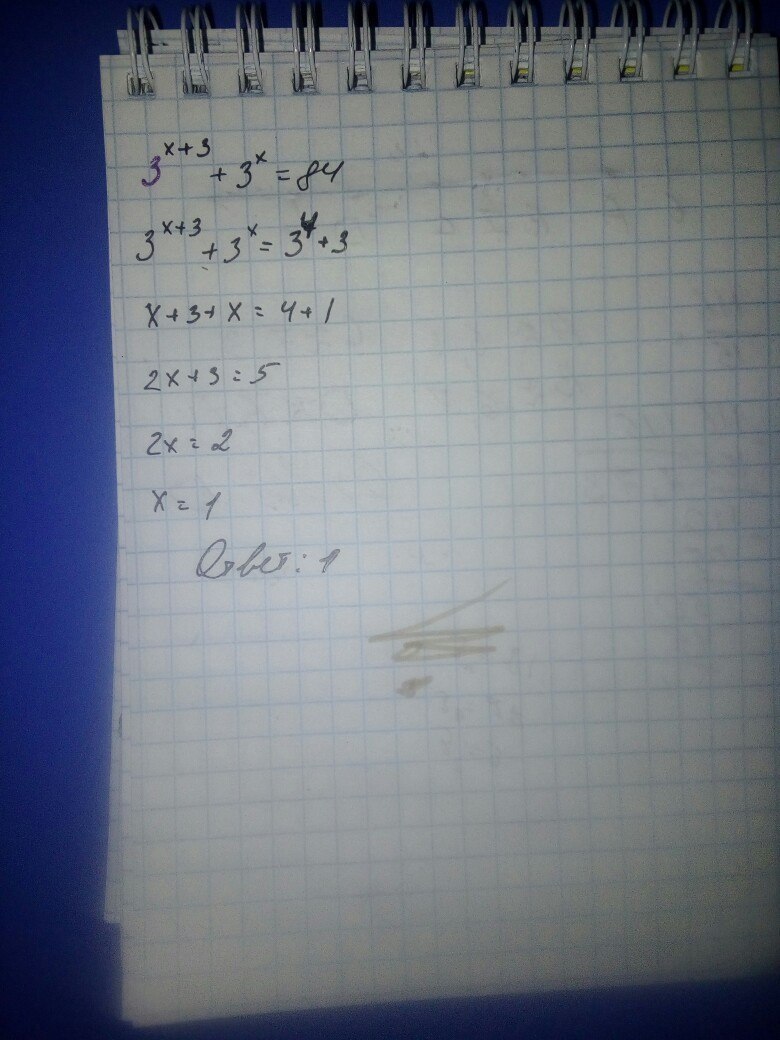 3^{x+3} + 3^x = 84
3^{x+3} + 3^x = 3^4 + 3
x + 3 + x = 4 + 1
2x + 3 = 5
2x = 2
x = 1
Ответ: 1